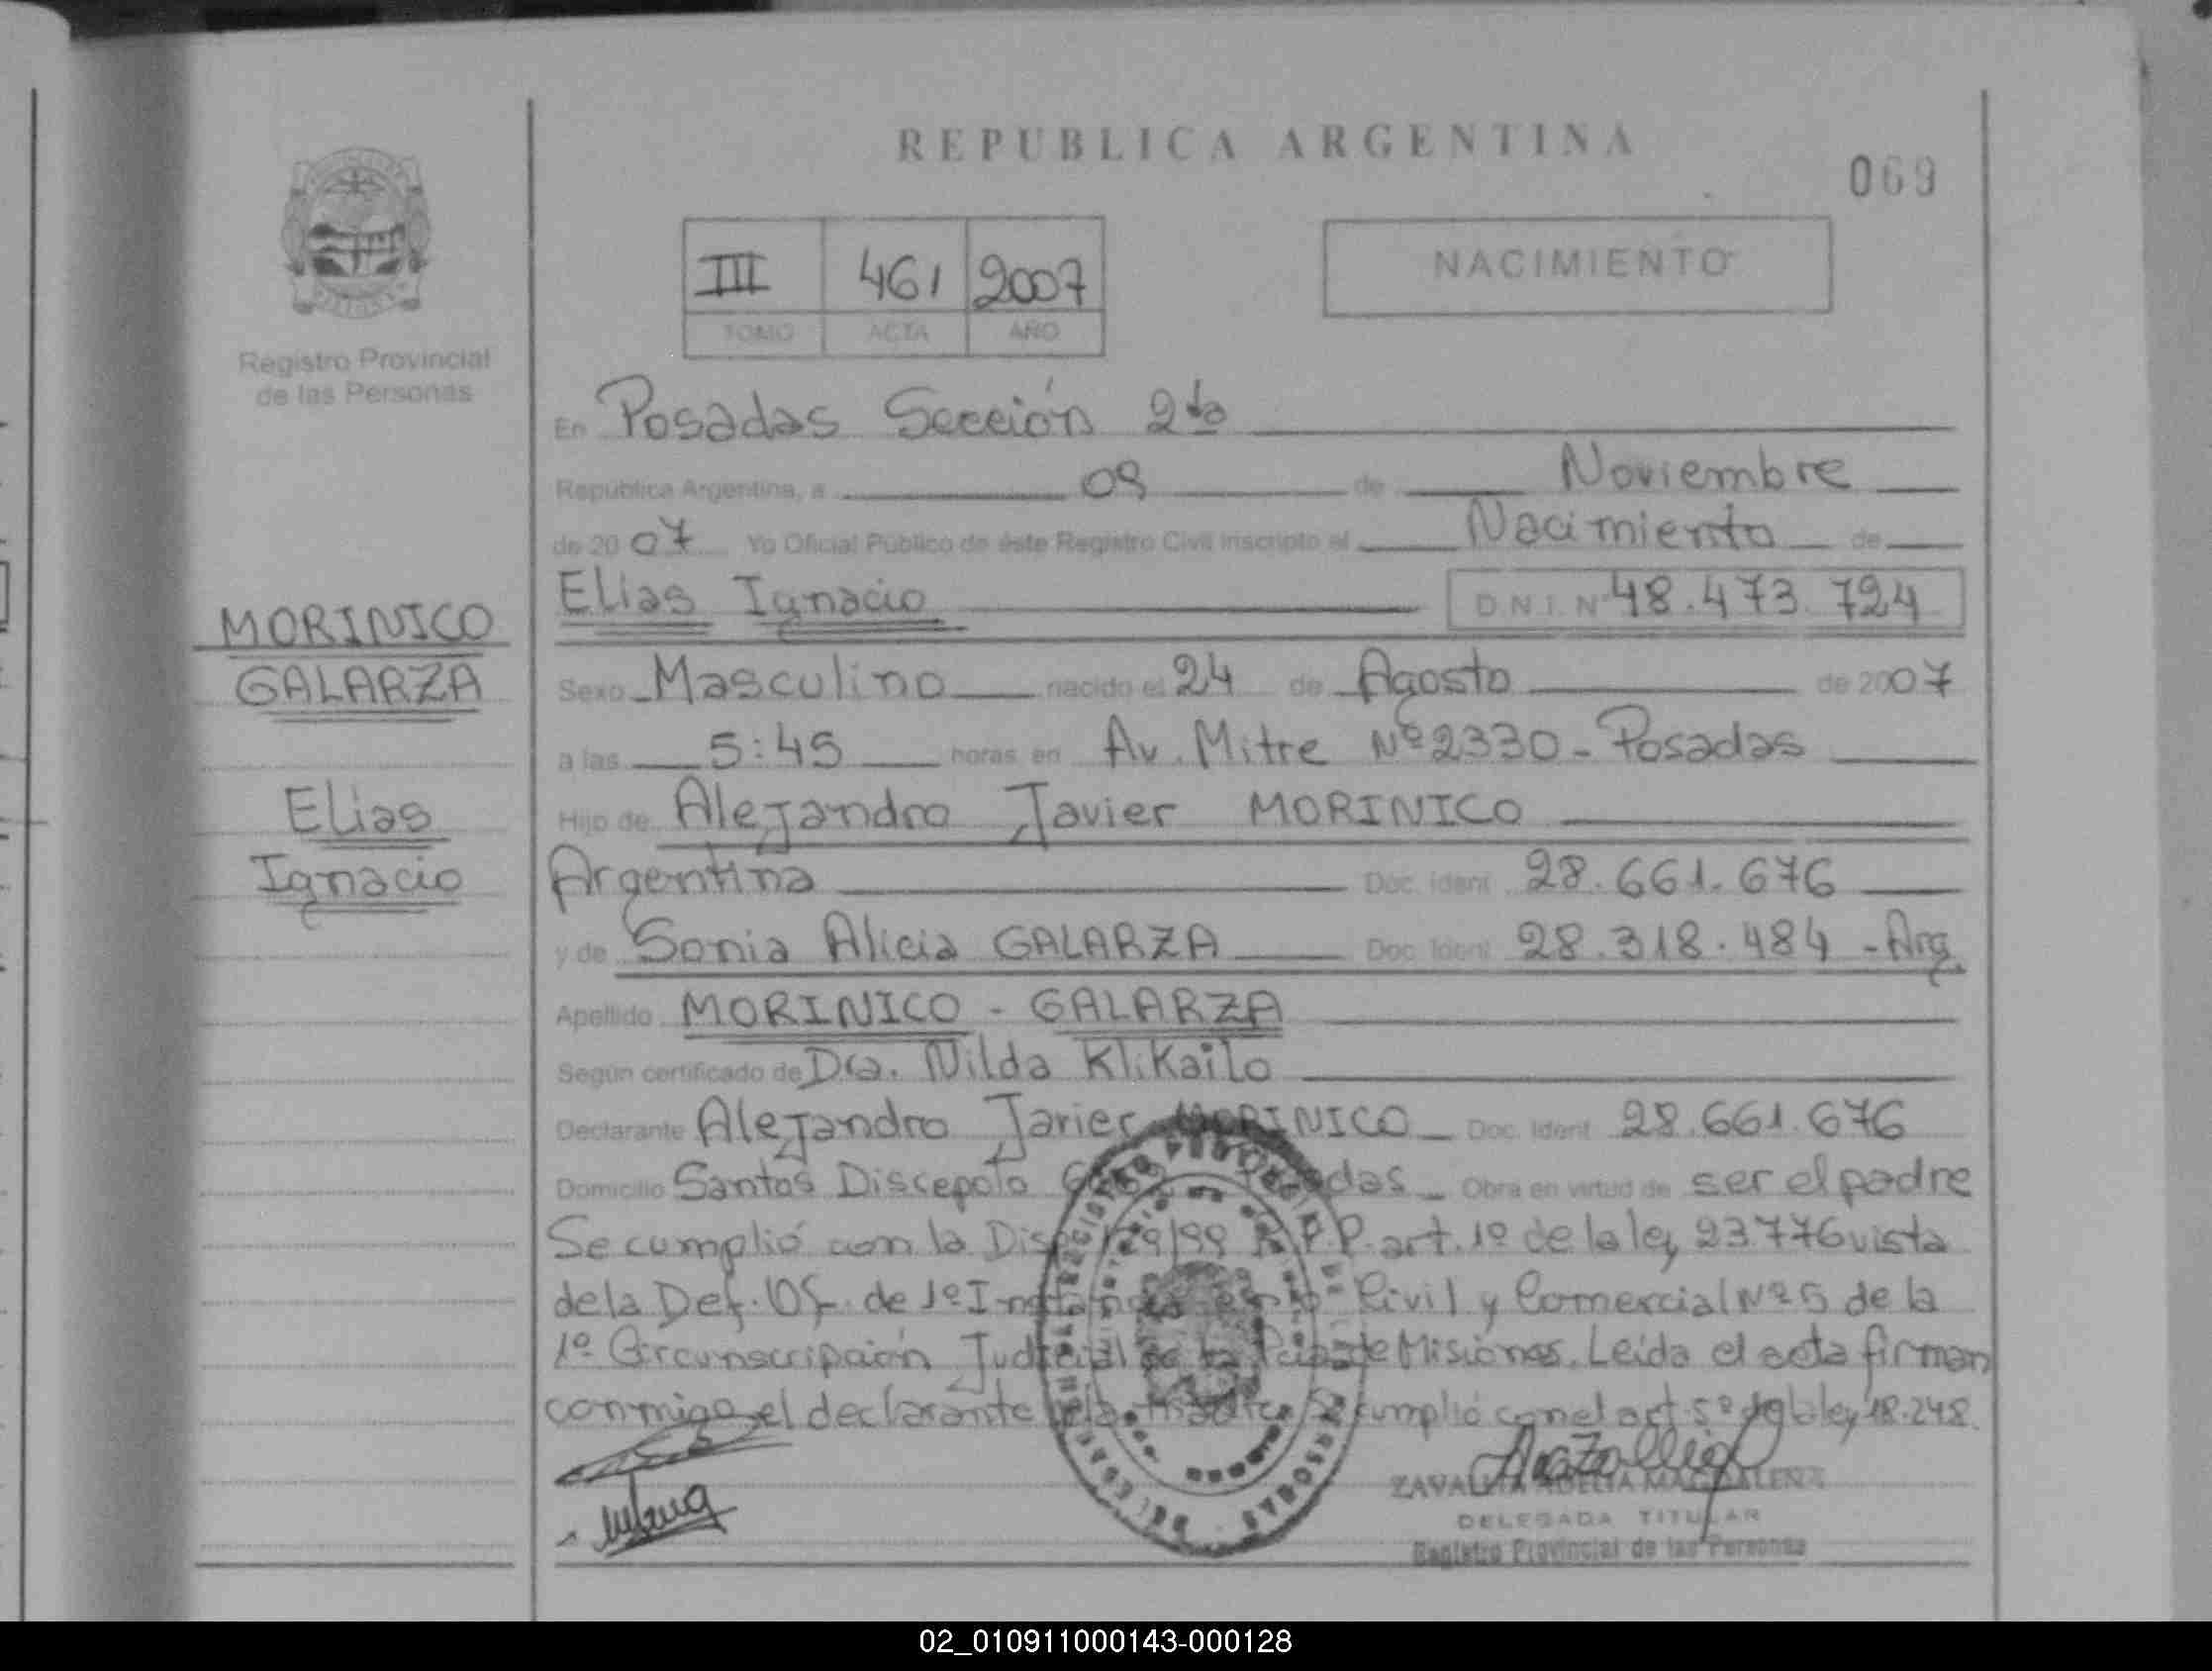 REPUBLICA ARGENTINA
069
III 461 2007
TOMO ACTA AÑO
NACIMIENTO
Registro Provincial
de las Personas
En Posadas Sección 2da
República Argentina, a 09 de Noviembre
de 2007 Yo Oficial Público de éste Registro Civil inscripto el Nacimiento de
Elias Ignacio D.N.I. Nº 48.473.724
MORINICO
GALARZA
Elias
Ignacio
Sexo Masculino nacido el 24 de Agosto de 2007
a las 5:45 horas en Av. Mitre Nº 2330 - Posadas
Hijo de Alejandro Javier MORINICO
Argentina Doc. Ident. 28.661.676
y de Sonia Alicia GALARZA Doc. Ident. 28.318.484 - Arg.
Apellido MORINICO - GALARZA
Según certificado de Dra. Nilda Klikailo
Declarante Alejandro Javier MORINICO Doc. Ident. 28.661.676
Domicilio Santos Discepolo Obra en virtud de ser el padre
Se cumplió con la Disp. 129/99 R.P.P. art. 1º de la ley 23.776 vista
de la Def. Of. de 1º Instancia en lo Civil y Comercial Nº 5 de la
1º Circunscripción Judicial de la Pcia de Misiones. Leída el acta firman
conmigo el declarante y la madre. Se cumplió con el art 5º de la ley 18.248.
ZAVALLIA ADELIA MAGDALENA
DELEGADA TITULAR
Registro Provincial de las Personas
02_010911000143-000128